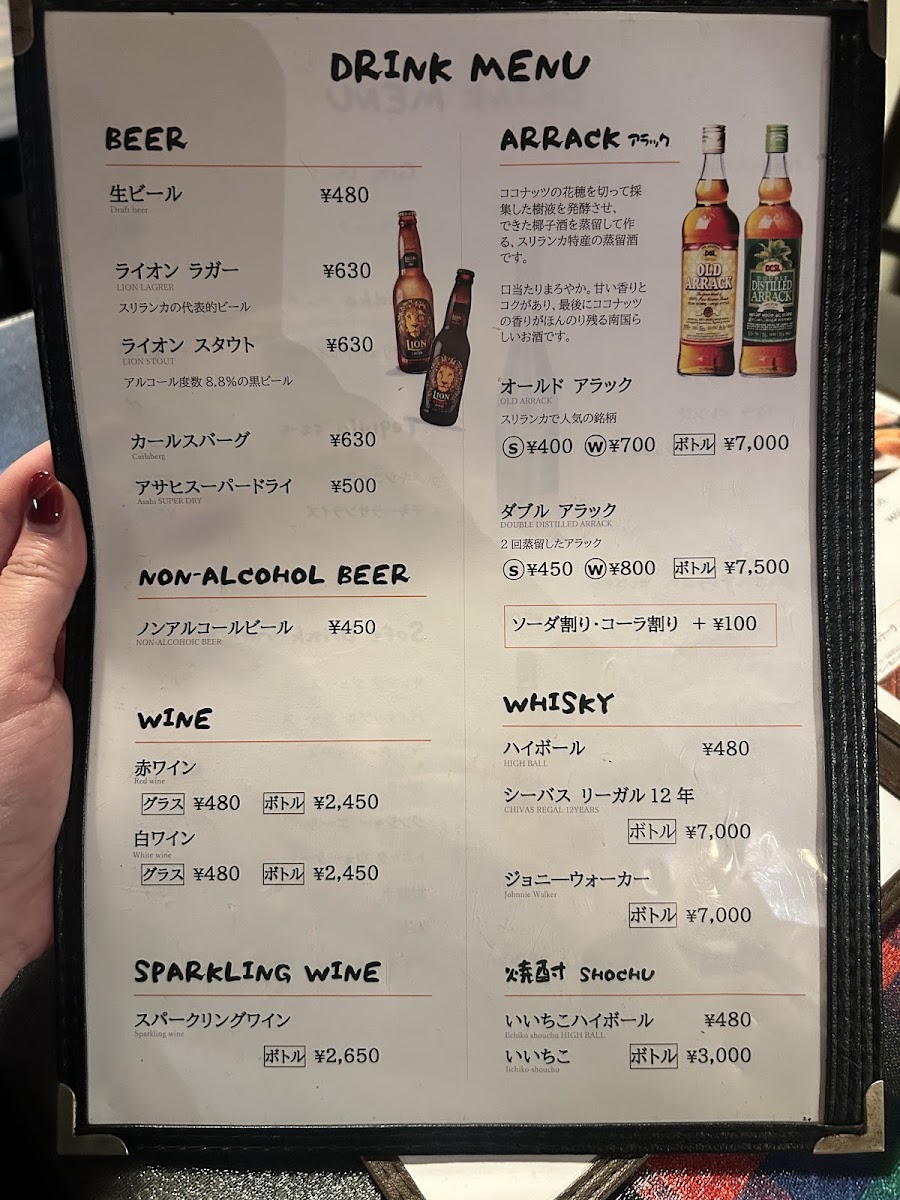 DRINK MENU
BEER
生ビール ¥480
Draft beer
ライオン ラガー ¥630
LION LAGRER
スリランカの代表的ビール
ライオン スタウト ¥630
LION STOUT
アルコール度数 8.8%の黒ビール
カールスバーグ ¥630
Carlsberg
アサヒスーパードライ ¥500
Asahi SUPER DRY
LION
LION
NON-ALCOHOL BEER
ノンアルコールビール ¥450
NON-ALCOHOIC BEER
WINE
赤ワイン
Red wine
グラス ¥480 ボトル ¥2,450
白ワイン
White wine
グラス ¥480 ボトル ¥2,450
SPARKLING WINE
スパークリングワイン
Sparkling wine
ボトル ¥2,650
ARRACK アラック
ココナッツの花穂を切って採
集した樹液を発酵させ、
できた椰子酒を蒸留して作
る、スリランカ特産の蒸留酒
です。
口当たりまろやか。甘い香りと
コクがあり、最後にココナッツ
の香りがほんのり残る南国ら
しいお酒です。
OLD
ARRACK
DCSL
DOUBLE
DISTILLED
ARRACK
オールド アラック
OLD ARRACK
スリランカで人気の銘柄
Ⓢ¥400 Ⓦ¥700 ボトル ¥7,000
ダブル アラック
DOUBLE DISTILLED ARRACK
2 回蒸留したアラック
Ⓢ¥450 Ⓦ¥800 ボトル ¥7,500
ソーダ割り・コーラ割り + ¥100
WHISKY
ハイボール ¥480
HIGH BALL
シーバス リーガル 12 年
CHIVAS REGAL 12YEARS
ボトル ¥7,000
ジョニーウォーカー
Johnnie Walker
ボトル ¥7,000
焼酎 SHOCHU
いいちこハイボール ¥480
Iichiko shouchu HIGH BALL
いいちこ ボトル ¥3,000
Iichiko shouchu